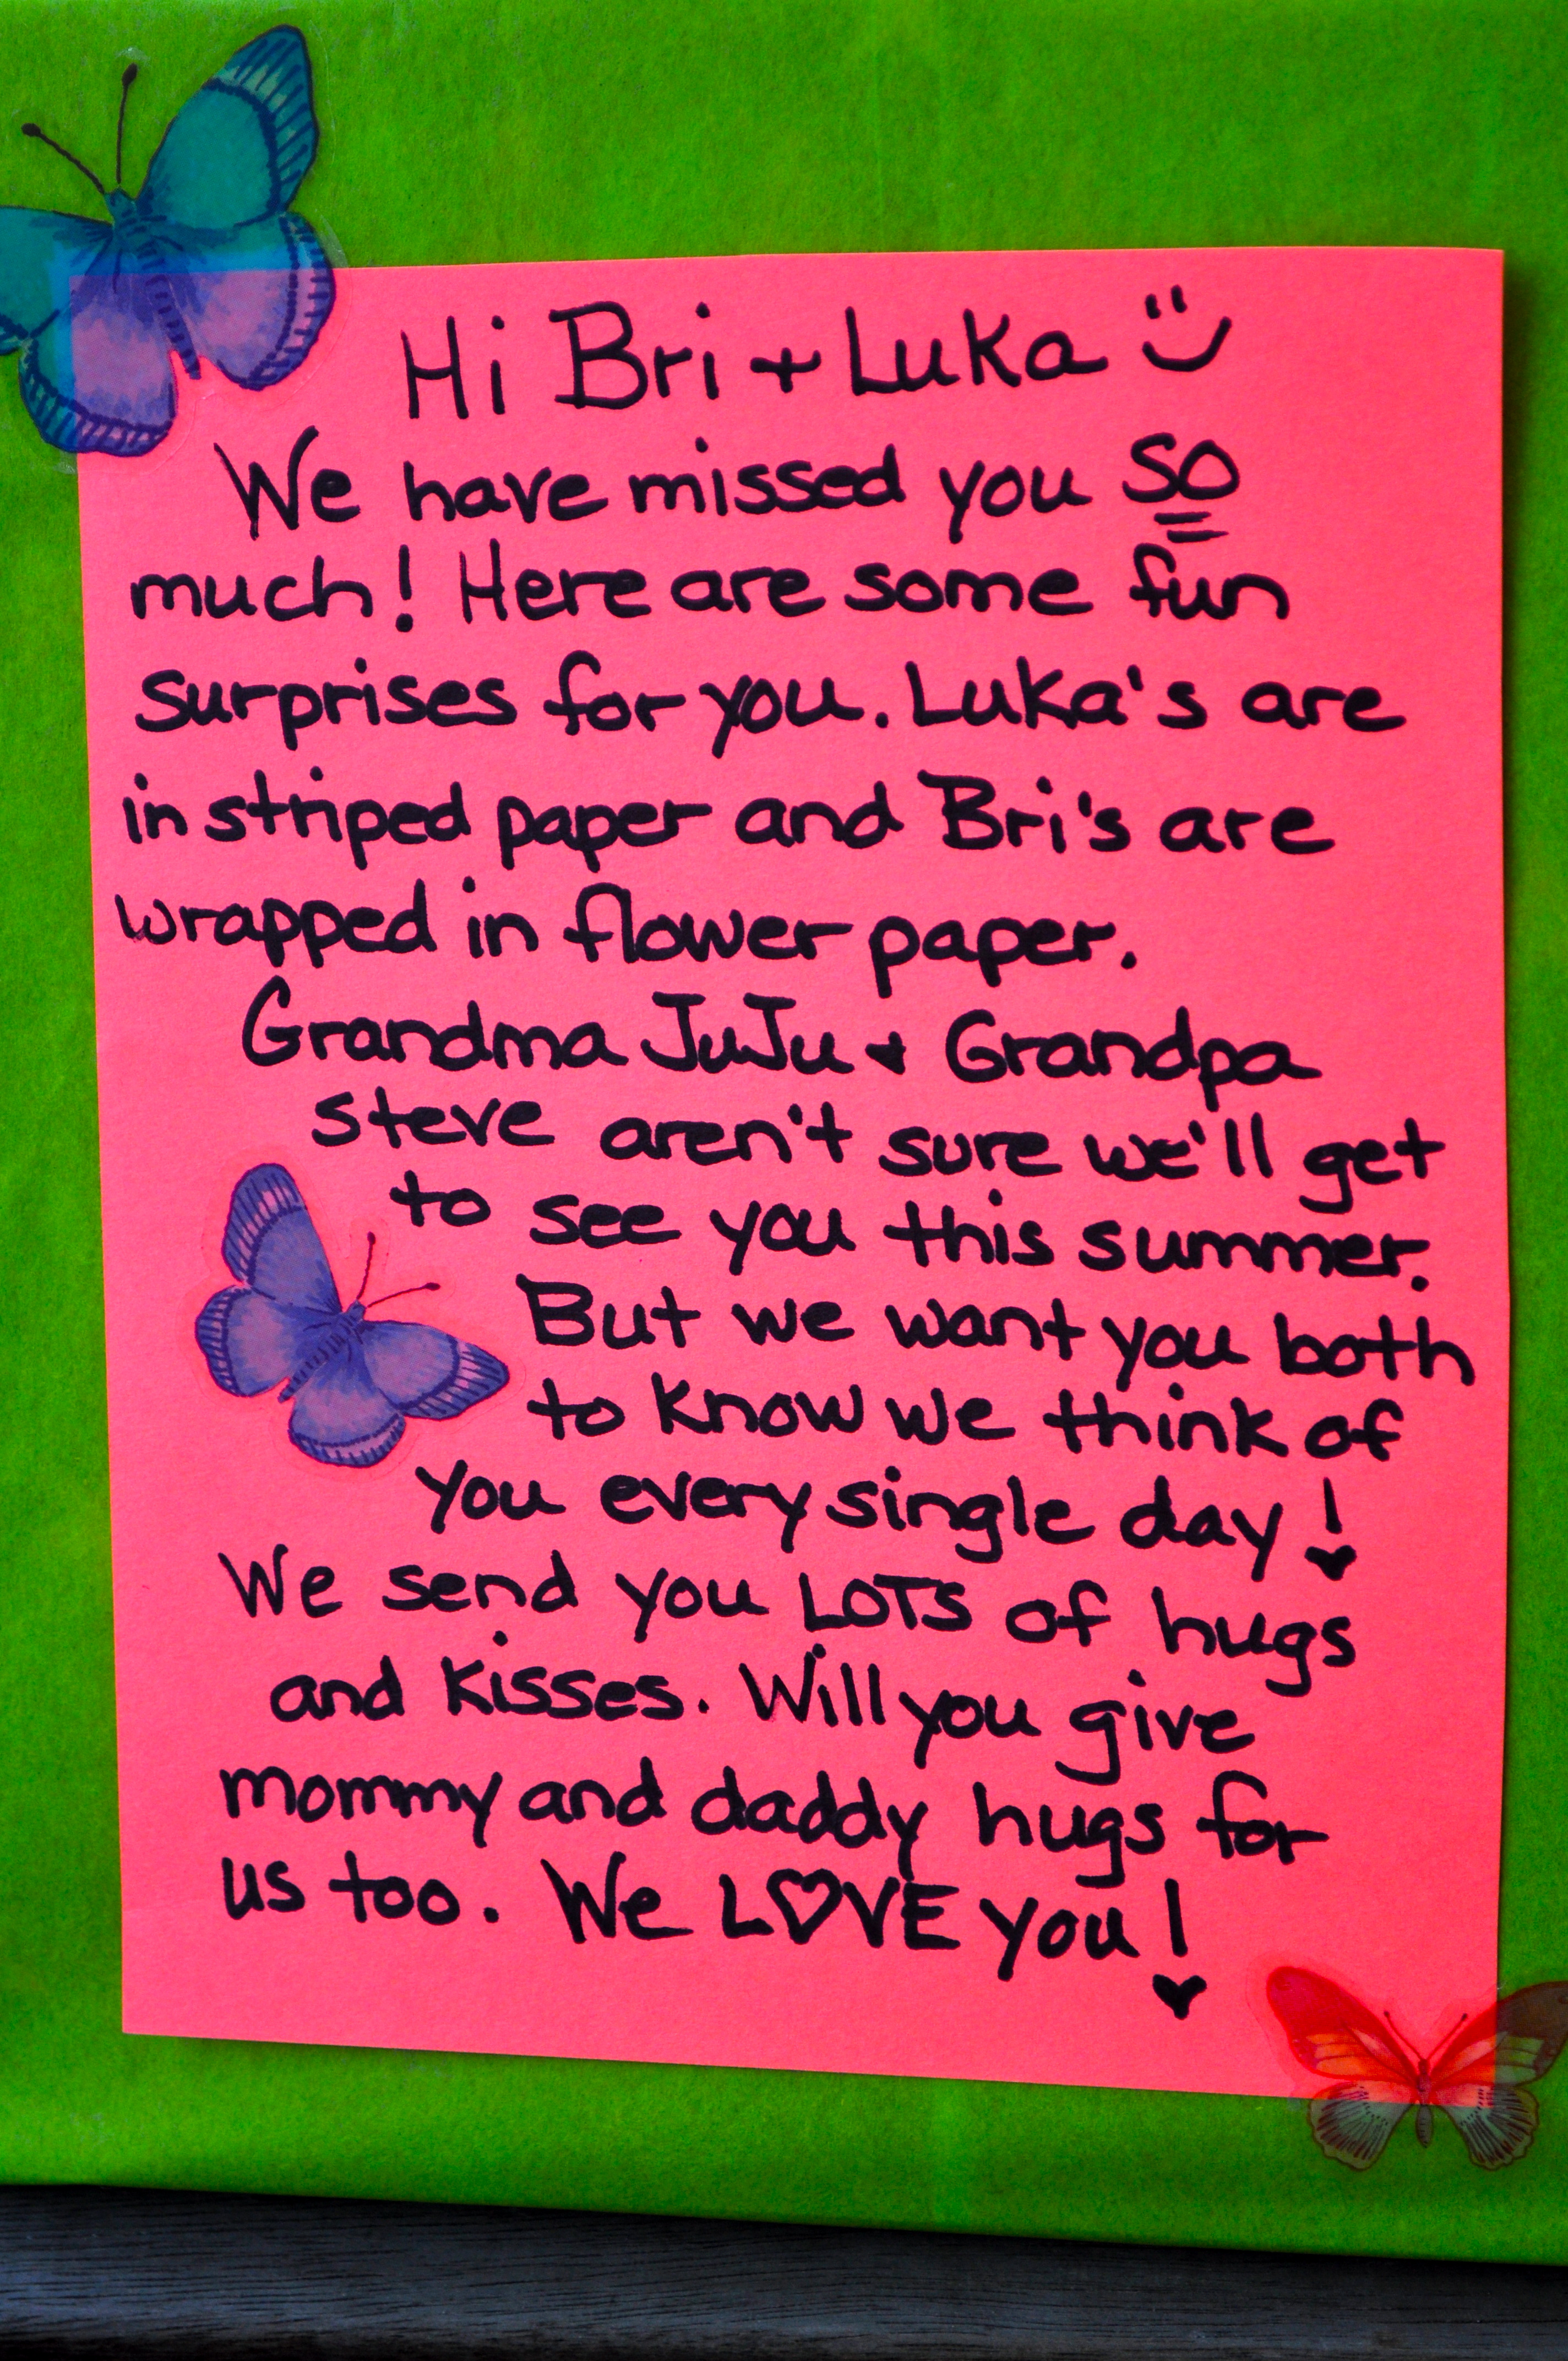 Hi Bri + Luka
We have missed you SO
much! Here are some fun
surprises for you. Luka's are
in striped paper and Bri's are
wrapped in flower paper.
Grandma JuJu + Grandpa
Steve aren't sure we'll get
to see you this summer.
But we want you both
to know we think of
you every single day!
We send you LOTS of hugs
and kisses. Will you give
mommy and daddy hugs for
us too. We L♡VE you!